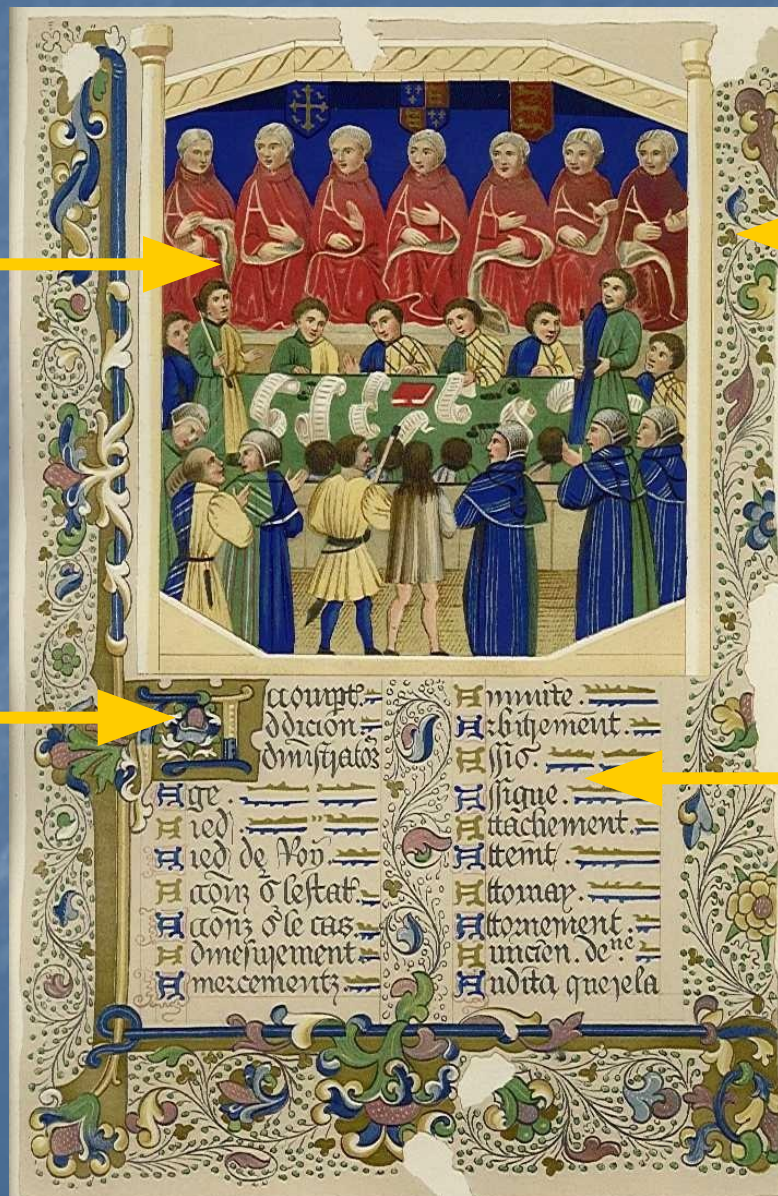 Accompt.
ddicion
dministrator
Age.
Aied.
Aied de Roy
Accons s lestat.
Accons s le cas
Admesurement
Amercementz.
Annuite.
Arbitrement.
Assis.
Assigne.
Attachement.
Atteint.
Attornay.
Attornement.
Auncien. de.ne
Audita querela